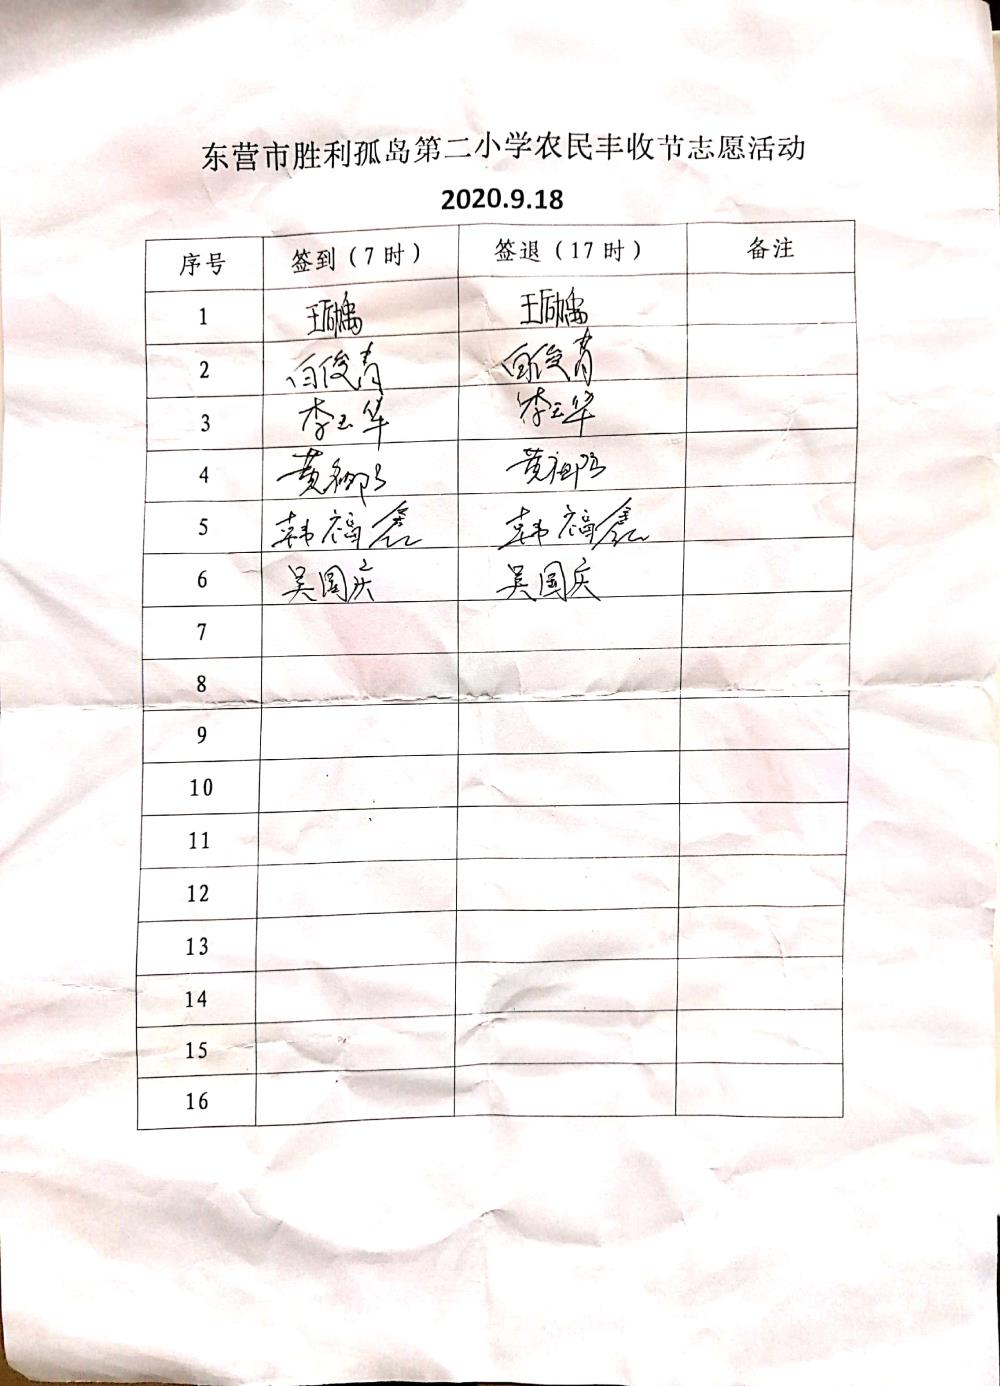 东营市胜利孤岛第二小学农民丰收节志愿活动
2020.9.18
序号 签到（7时） 签退（17时） 备注
1 王励鳴 王励鳴
2 白俊青 白俊青
3 李玉华 李玉华
4 黄 黄
5 韩福鑫 韩福鑫
6 吴国庆 吴国庆
7
8
9
10
11
12
13
14
15
16